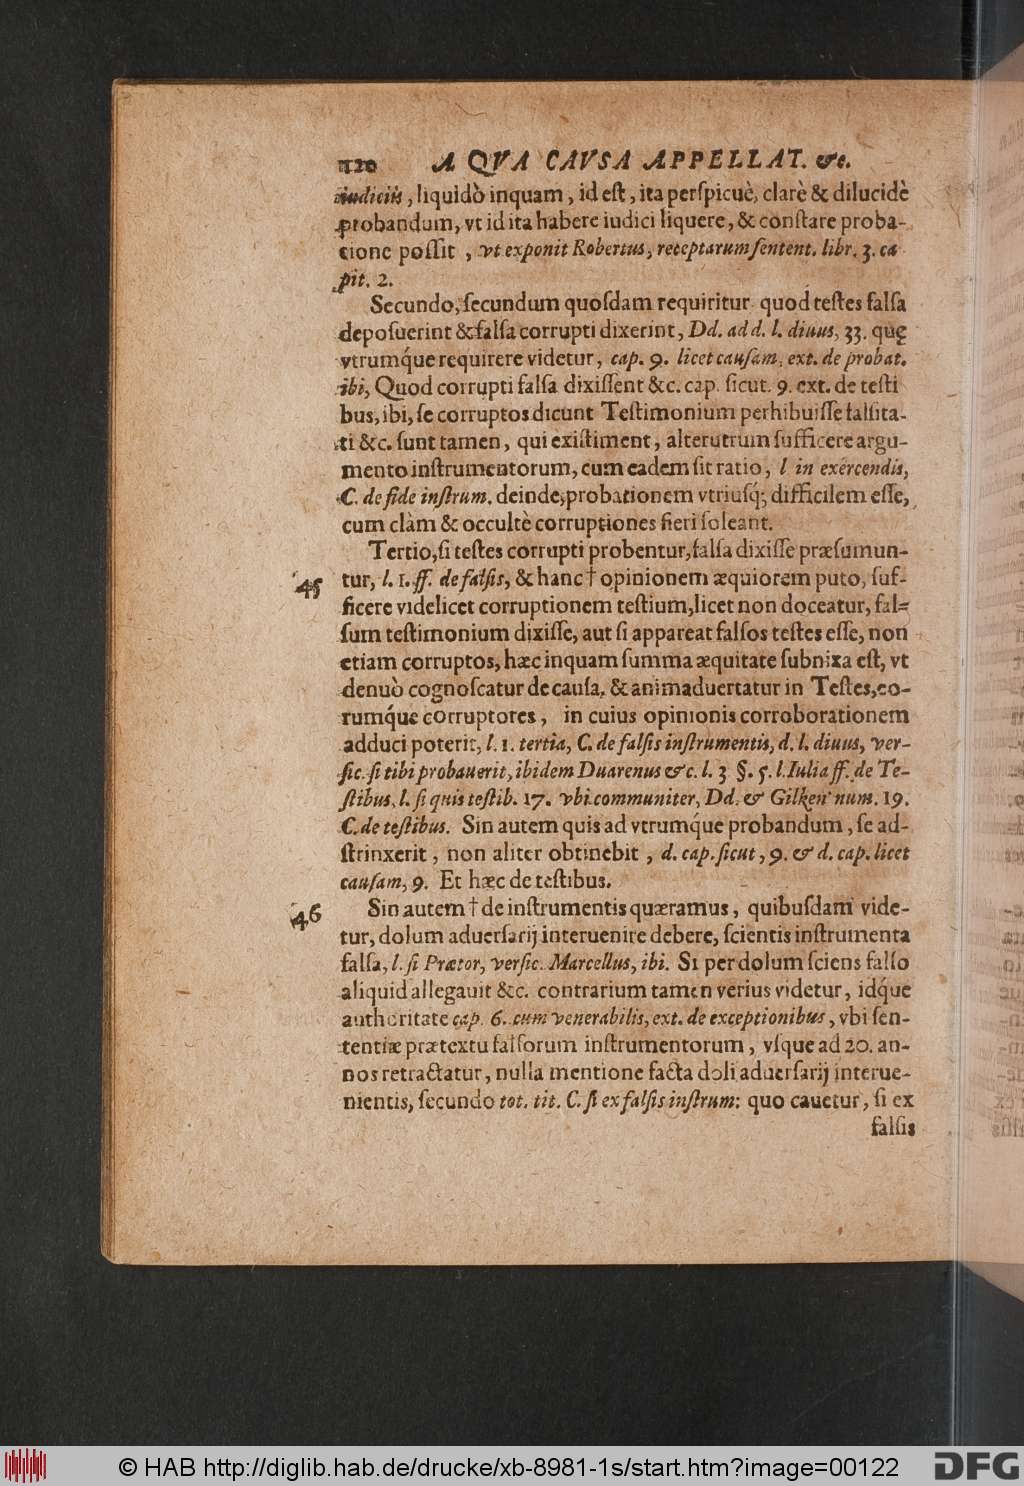 120 A QVA CAVSA APPELLAT. &c.
iudiciis, liquidò inquam, id eſt, ita perſpicuè, clarè & dilucidè
probandum, vt id ita habere iudici liquere, & conſtare proba-
tione poſſit, vt exponit Robertus, receptarum ſentent. libr. 3. ca
pit. 2.
Secundo, ſecundum quoſdam requiritur quod teſtes falſa
depoſuerint & falſa corrupti dixerint, Dd. ad d. l. diuus, 33. quę
vtrumq́ue requirere videtur, cap. 9. licet cauſam, ext. de probat.
ibi, Quod corrupti falſa dixiſſent &c. cap. ſicut. 9. ext. de teſti
bus, ibi, ſe corruptos dicunt Teſtimonium perhibuiſſe falſita-
ti &c. ſunt tamen, qui exiſtiment, alterutrum ſufficere argu-
mento inſtrumentorum, cum eadem ſit ratio, l in exercendis,
C. de fide inſtrum. deinde, probationem vtriuſq́; difficilem eſſe,
cum clàm & occultè corruptiones fieri ſoleant.
Tertio, ſi teſtes corrupti probentur, falſa dixiſſe præſumun-
45 tur, l. 1. ff. de falſis, & hanc † opinionem æquiorem puto, ſuf-
ficere videlicet corruptionem teſtium, licet non doceatur, fal-
ſum teſtimonium dixiſſe, aut ſi appareat falſos teſtes eſſe, non
etiam corruptos, hæc inquam ſumma æquitate ſubnixa eſt, vt
denuò cognoſcatur de cauſa, & animaduertatur in Teſtes, eo-
rumq́ue corruptores, in cuius opinionis corroborationem
adduci poterit, l. 1. tertia, C. de falſis inſtrumentis, d. l. diuus, ver-
ſic. ſi tibi probauerit, ibidem Duarenus &c. l. 3 §. 5. l. Iulia ff. de Te-
ſtibus, l. ſi quis teſtib. 17. vbi communiter, Dd. & Gilken num. 19.
C. de teſtibus. Sin autem quis ad vtrumq́ue probandum, ſe ad-
ſtrinxerit, non aliter obtinebit, d. cap. ſicut, 9. & d. cap. licet
cauſam, 9. Et hæc de teſtibus.
46 Sin autem † de inſtrumentis quæramus, quibuſdam vide-
tur, dolum aduerſarij interuenire debere, ſcientis inſtrumenta
falſa, l. ſi Prætor, verſic. Marcellus, ibi. Si per dolum ſciens falſo
aliquid allegauit &c. contrarium tamen verius videtur, idq́ue
authoritate cap. 6. cum venerabilis, ext. de exceptionibus, vbi ſen-
tentiæ prætextu falſorum inſtrumentorum, vſque ad 20. an-
nos retractatur, nulla mentione facta doli aduerſarij interue-
nientis, ſecundo tot. tit. C. ſi ex falſis inſtrum: quo cauetur, ſi ex
falſis
© HAB http://diglib.hab.de/drucke/xb-8981-1s/start.htm?image=00122
DFG